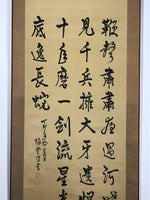 鞭聲肅肅夜過河曉
見千兵擁大牙遺恨
十年磨一劍流星光
底逸長蛇